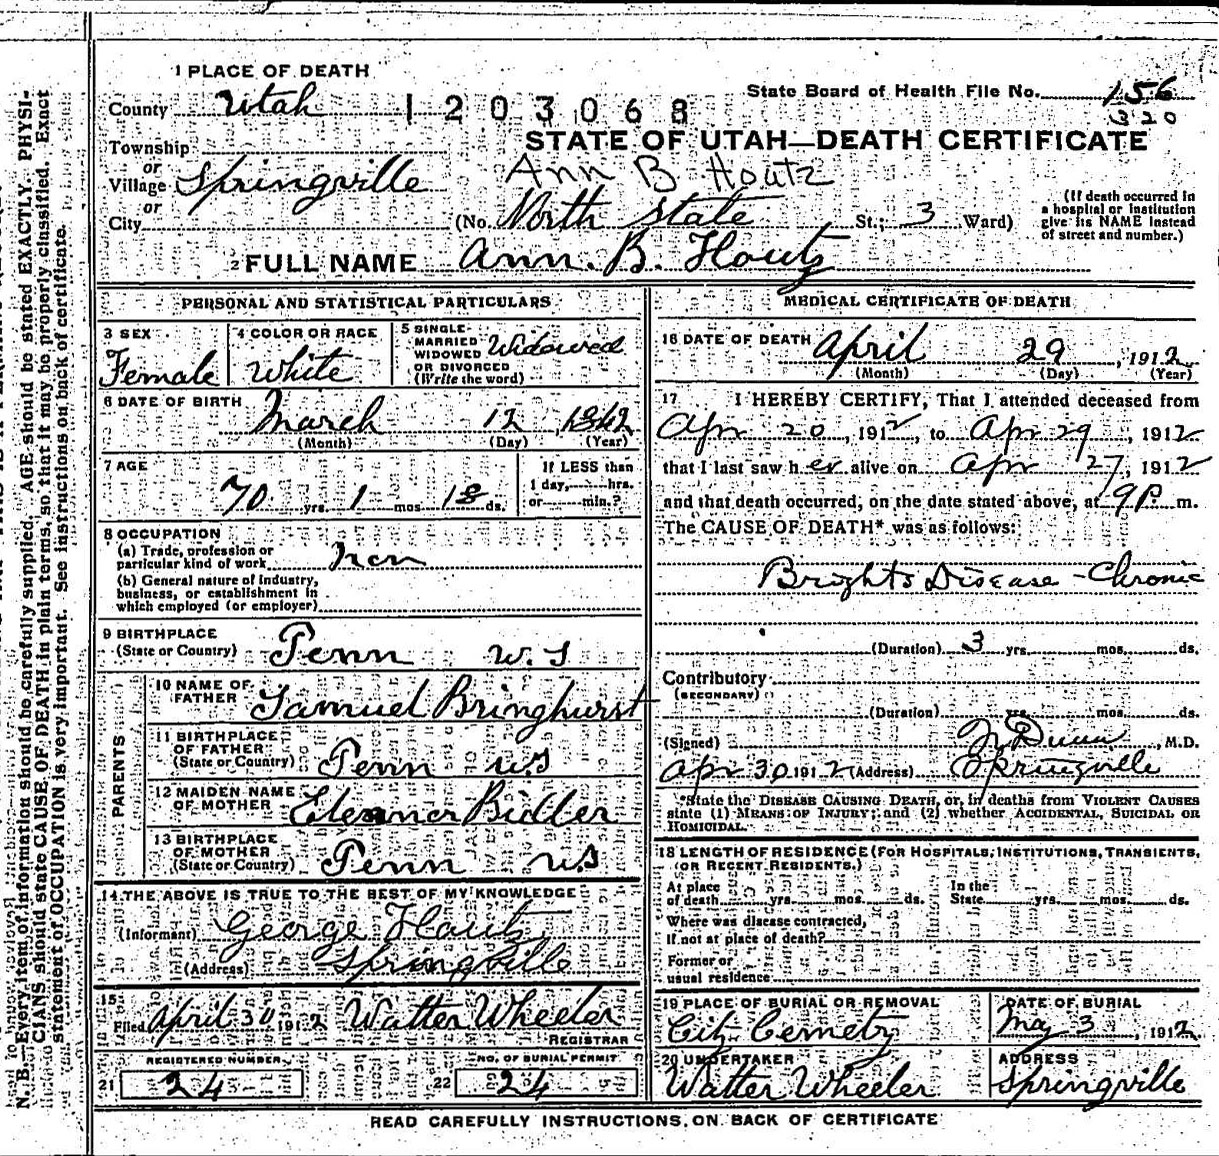 1 PLACE OF DEATH
County Utah
1203068
State Board of Health File No. 156
320
STATE OF UTAH—DEATH CERTIFICATE
Township
or
Village Springville
or
City
Ann B Houtz
(No. North State St.; 3 Ward)
(If death occurred in
a hospital or institution
give its NAME instead
of street and number.)
2 FULL NAME Ann. B. Houtz
PERSONAL AND STATISTICAL PARTICULARS
3 SEX
Female
4 COLOR OR RACE
White
5 SINGLE
MARRIED
WIDOWED
OR DIVORCED
(Write the word)
Widowed
6 DATE OF BIRTH
March 12, 1842
(Month) (Day) (Year)
7 AGE
70 yrs. 1 mos. 18 ds.
If LESS than
1 day, hrs.
or min.?
8 OCCUPATION
(a) Trade, profession or
particular kind of work
(b) General nature of industry,
business, or establishment in
which employed (or employer)
9 BIRTHPLACE
(State or Country) Penn U.S
PARENTS
10 NAME OF
FATHER Samuel Bringhurst
11 BIRTHPLACE
OF FATHER
(State or Country) Penn U.S
12 MAIDEN NAME
OF MOTHER Eleanor Bidler
13 BIRTHPLACE
OF MOTHER
(State or Country) Penn U.S
14 THE ABOVE IS TRUE TO THE BEST OF MY KNOWLEDGE
(Informant) George Houtz
(Address) Springville
15
Filed April 30 1912 Walter Wheeler
REGISTRAR
REGISTERED NUMBER
21 24
NO. OF BURIAL PERMIT
22 24
MEDICAL CERTIFICATE OF DEATH
16 DATE OF DEATH April 29, 1912
(Month) (Day) (Year)
17 I HEREBY CERTIFY, That I attended deceased from
Apr 20, 1912, to Apr 29, 1912
that I last saw her alive on Apr 27, 1912
and that death occurred, on the date stated above, at 9P. m.
The CAUSE OF DEATH* was as follows:
Brights Disease - Chronic
(Duration) 3 yrs. mos. ds.
Contributory
(SECONDARY)
(Duration) yrs. mos. ds.
(Signed) Dunn, M.D.
Apr 30 1912 (Address) Springville
*State the DISEASE CAUSING DEATH, or, in deaths from VIOLENT CAUSES
state (1) MEANS OF INJURY; and (2) whether ACCIDENTAL, SUICIDAL OR
HOMICIDAL.
18 LENGTH OF RESIDENCE (FOR HOSPITALS, INSTITUTIONS, TRANSIENTS,
OR RECENT RESIDENTS.)
At place
of death yrs. mos. ds.
In the
State yrs. mos. ds.
Where was disease contracted,
If not at place of death?
Former or
usual residence
19 PLACE OF BURIAL OR REMOVAL
City Cemetry
DATE OF BURIAL
May 3, 1912
20 UNDERTAKER
Walter Wheeler
ADDRESS
Springville
READ CAREFULLY INSTRUCTIONS ON BACK OF CERTIFICATE
N. B.—Every item of information should be carefully supplied. AGE should be stated EXACTLY. PHYSI-
CIANS should state CAUSE OF DEATH in plain terms, so that it may be properly classified. Exact
statement of OCCUPATION is very important. See instructions on back of certificate.